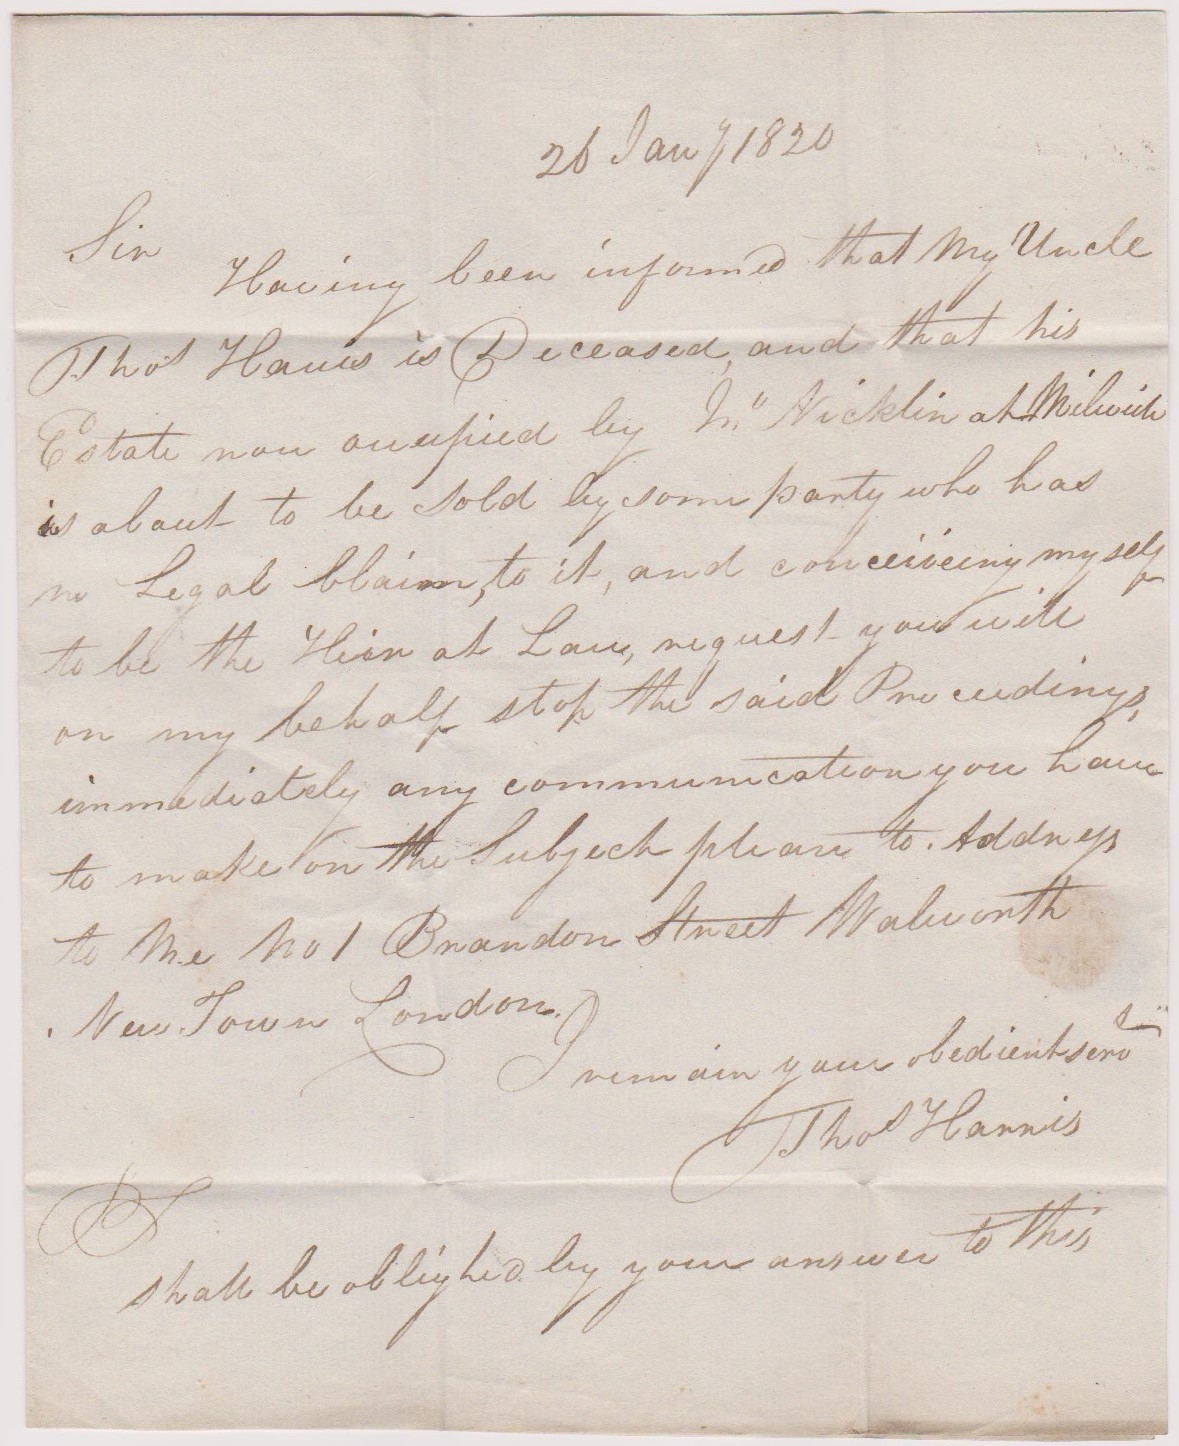 26 Jany 1820
Sir
Having been informed that My Uncle
Thos Harris is Deceased, and that his
Estate now occupied by Jn° Nicklin at Milwich
is about to be Sold by some party who has
no Legal Claim, to it, and conceiveing my self
to be the Heir at Law, request you will
on my behalf stop the said Proceedings,
immediately any communication you have
to make on the Subject please to Address
to Me No 1 Brandon Street Walworth
New Town London.
I remain your obedient serv
Thos Harris
PS
shall be oblighed by your answer to this